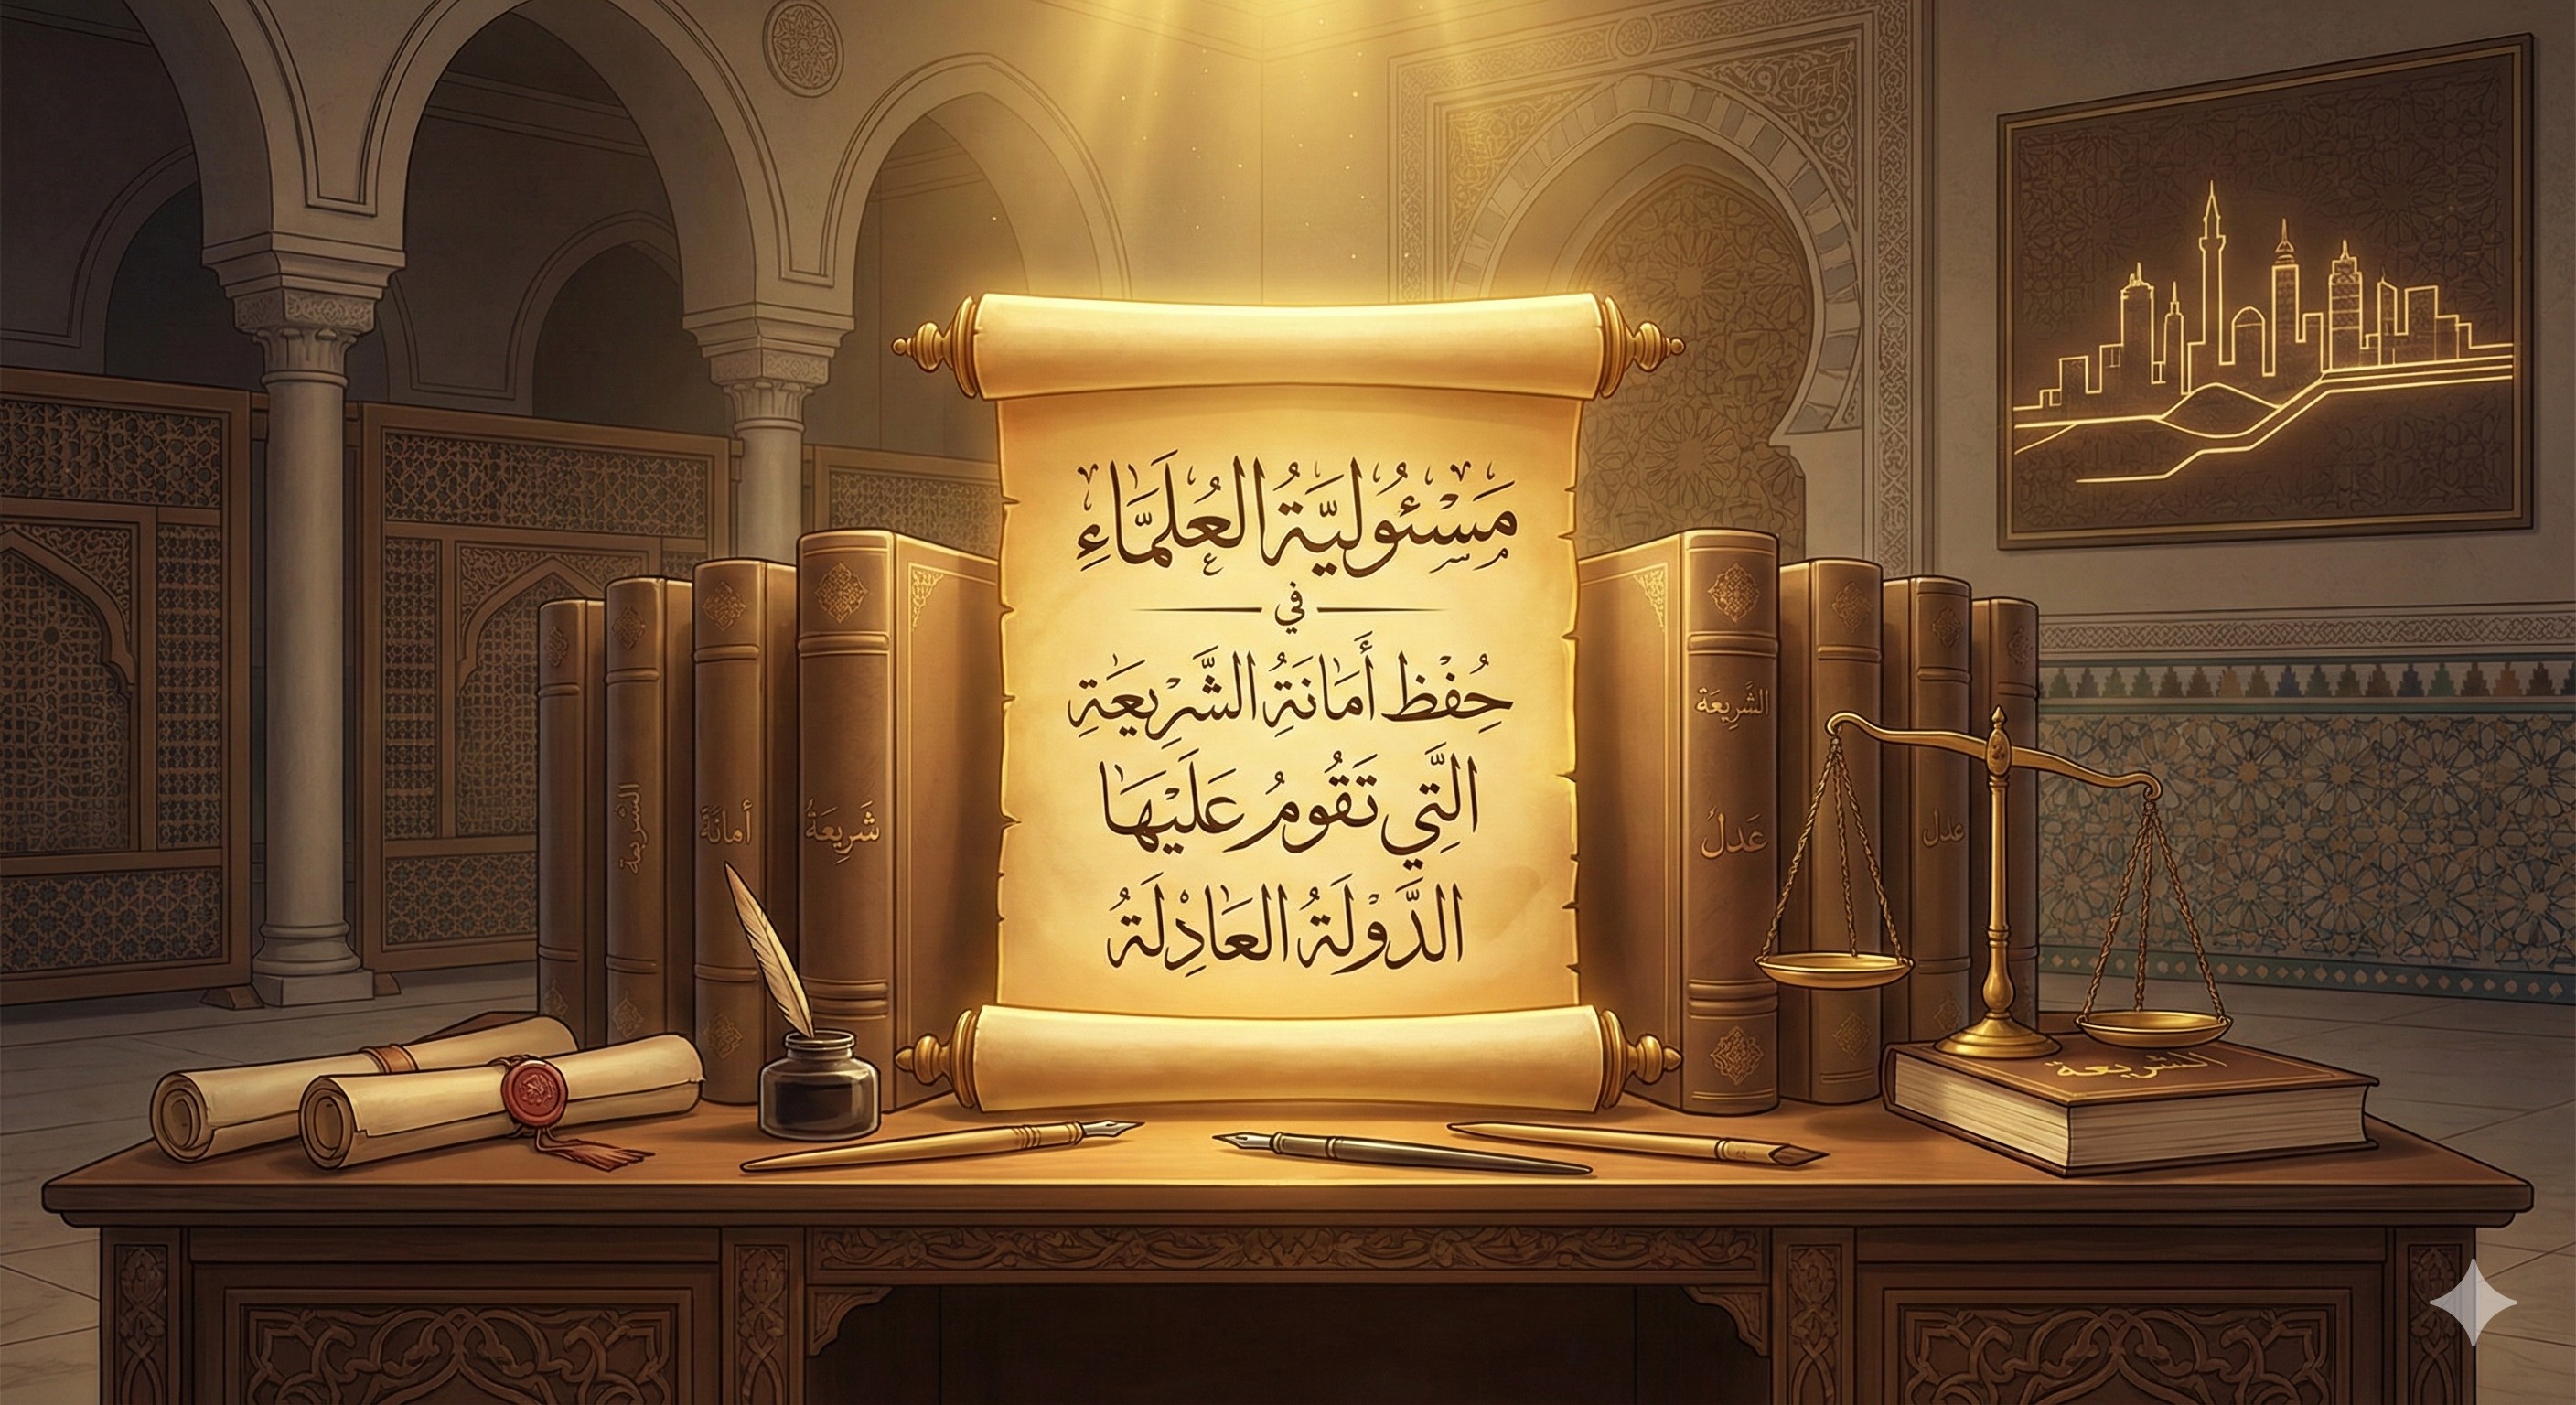 مَسْئُولِيَّةُ العُلَمَّاءِ
في
حُِفْظ أَمَانَةُ الشَّرِيعَةِ
الَّتِي تَقُومُ عَلَيْهَا
الدَّوْلَةُ العَادِلَةُ
الشَّرِيعَة
عَدلُ
عدل
شَرِيعَةُ
أمانَة
الشريعة
الشريعة